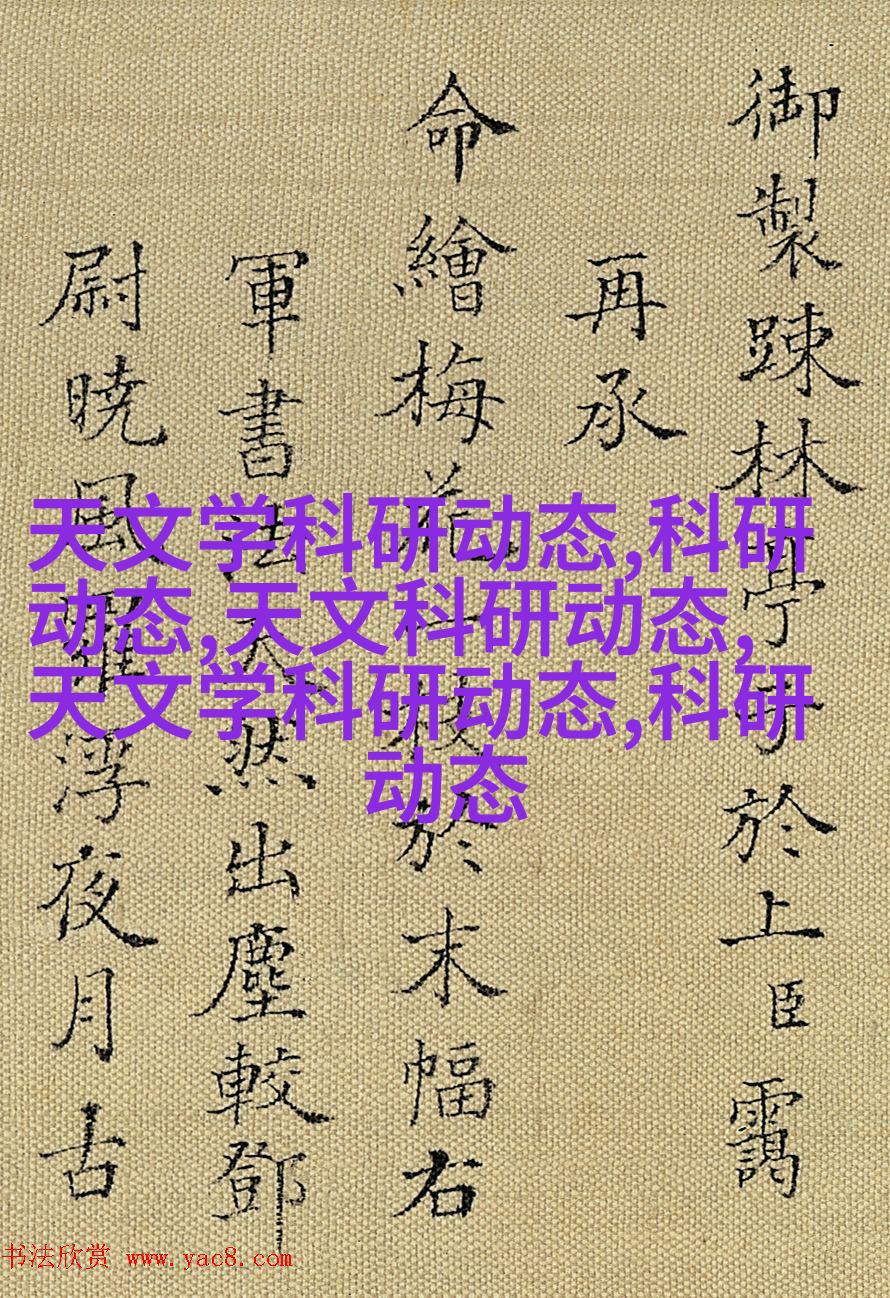 御製踈林亭子於上臣靄
再承
命繪梅花一枝於末幅右
軍書法天然出塵較鄧
尉暁風羅浮夜月古
天文学科研动态,科研
动态,天文科研动态,
天文学科研动态,科研
动态
书法欣赏 www.yac8.com